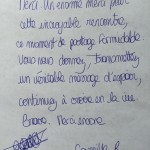 Merci. Un énorme merci pour
cette incroyable rencontre,
ce moment de partage formidable
Vous nous donnez, transmettez
un véritable message d'espoir,
continuez à croire en la vie
Bravo. Merci encore